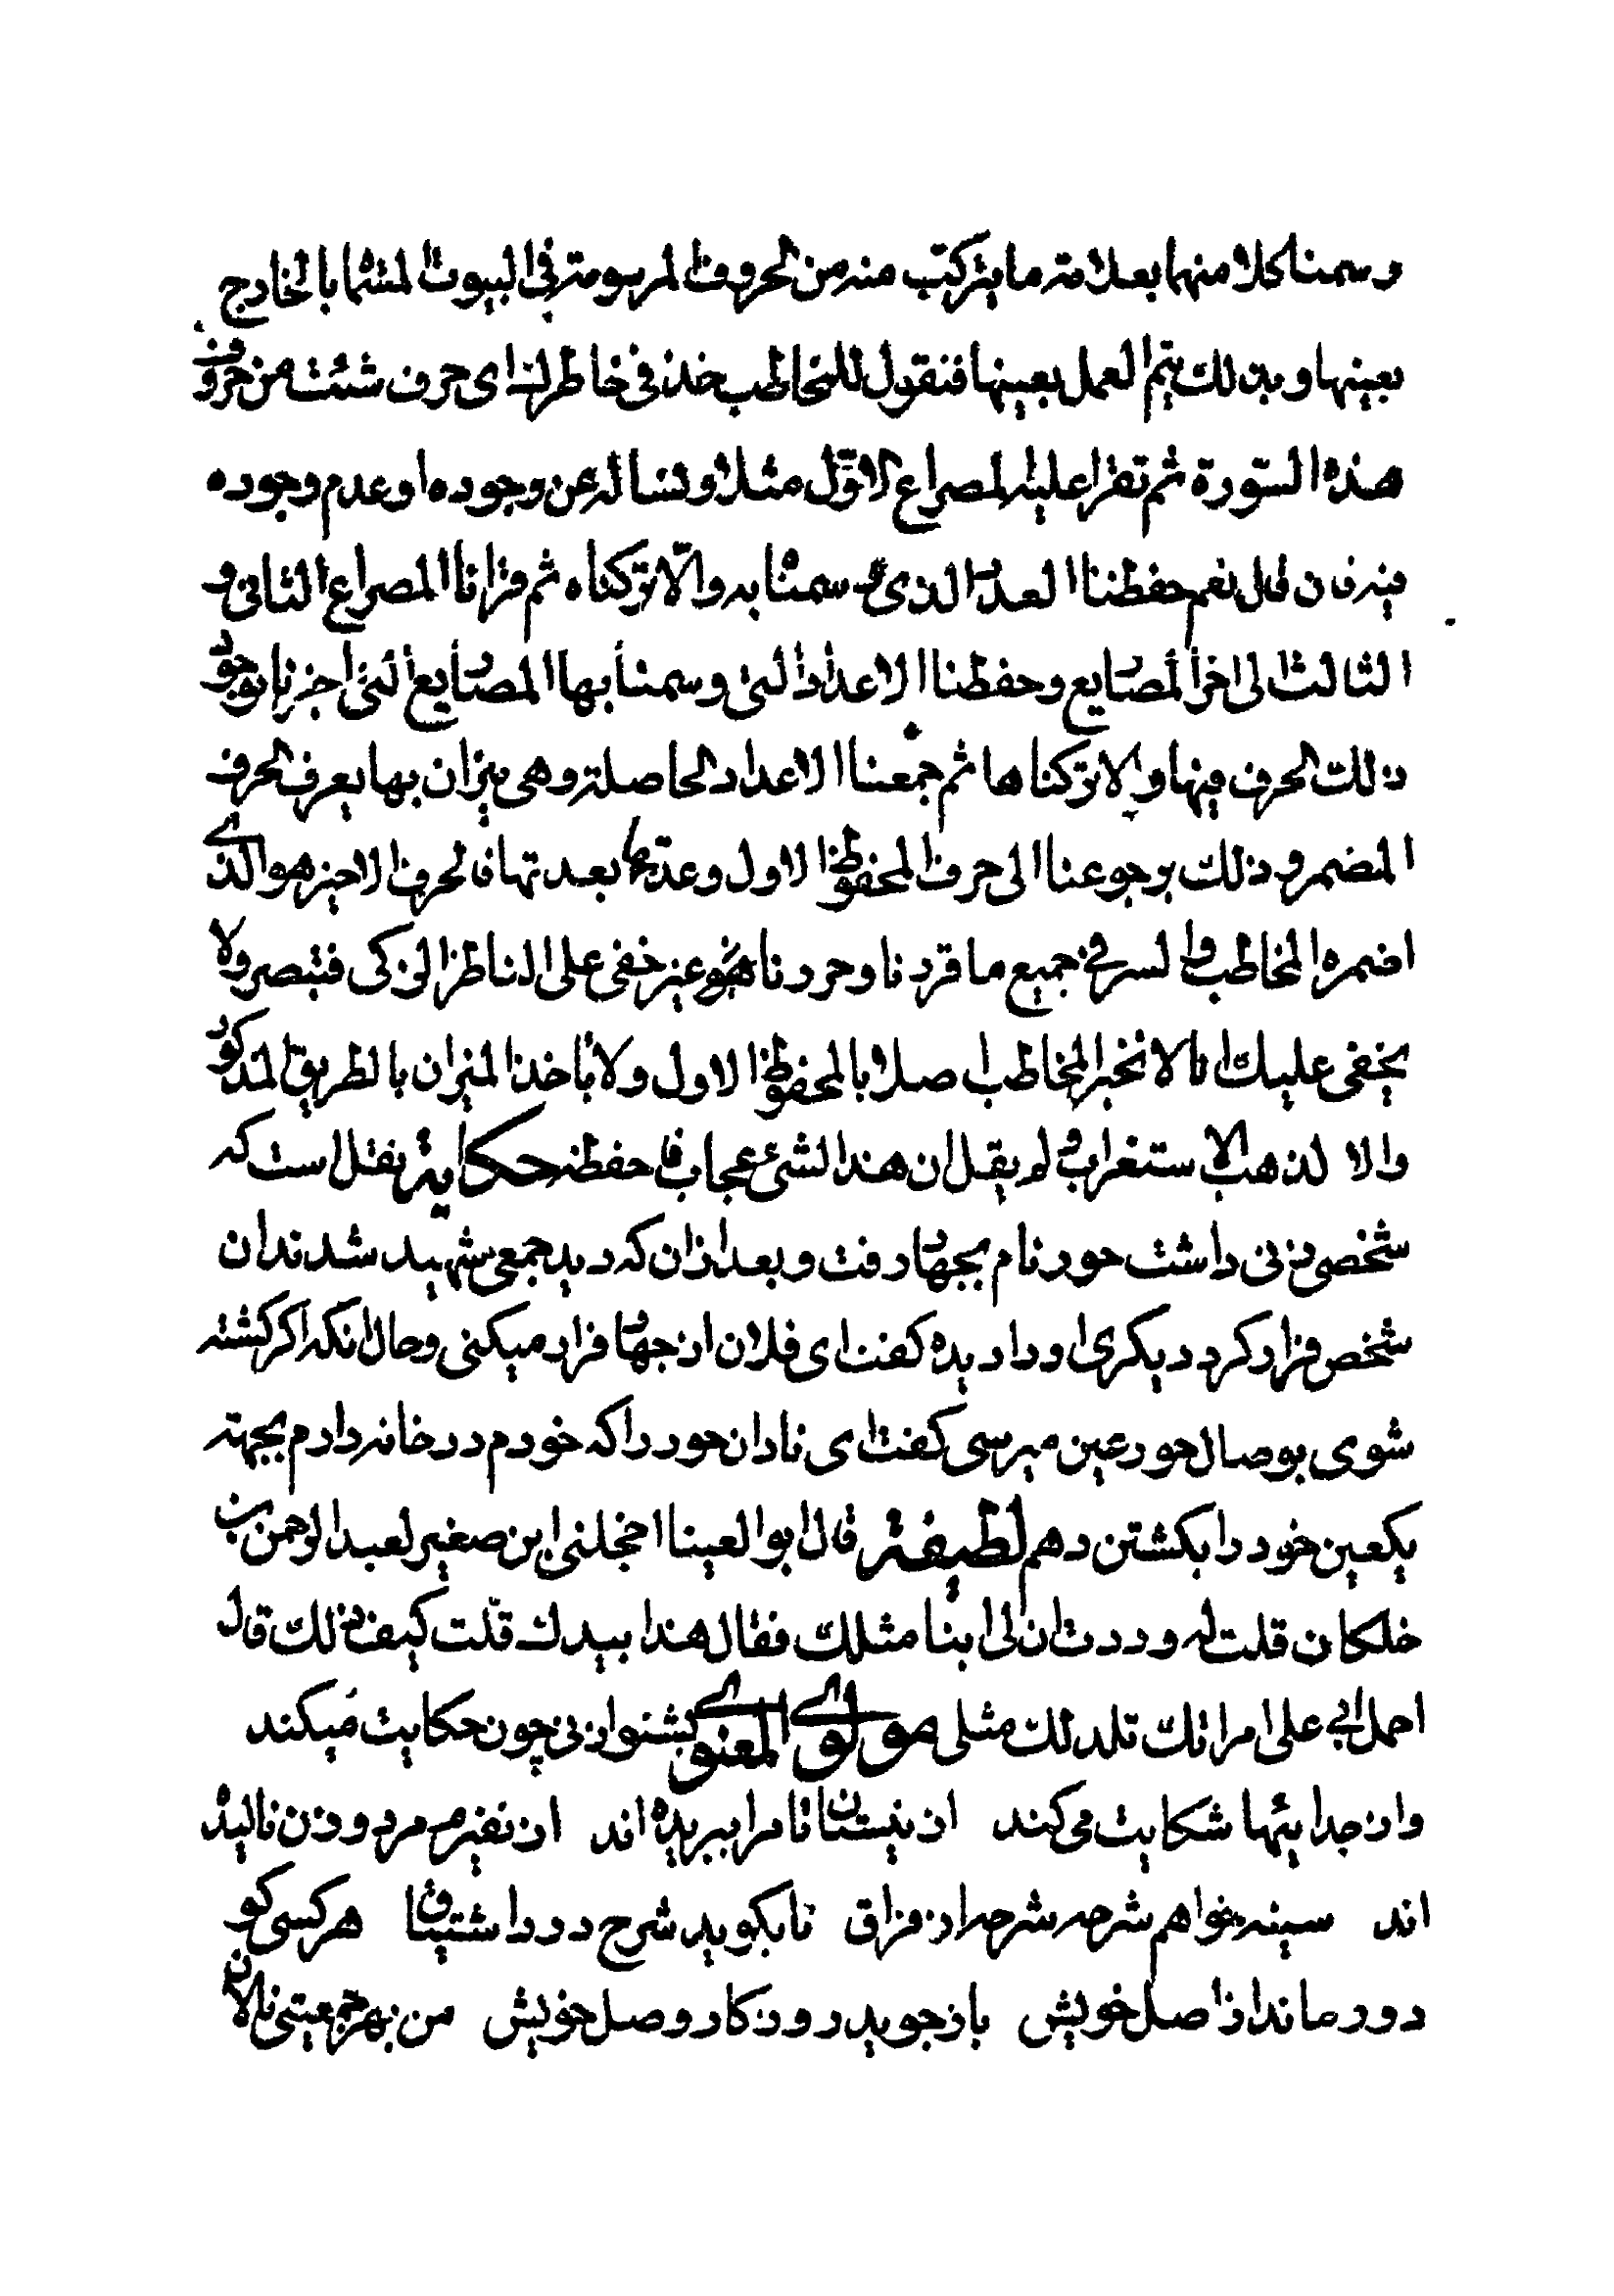 وسمنا كلا منهما بعلامة ما يتركب منه من الحروف المرسومة في البيوت المسماة بالخارج
بعينها وبذلك يتم العمل بعينها فنقول للمخاطب خذ في خاطرك اى حرف شئت من حروف
هذه السورة ثم تقرأ عليه المصراع الاول مثلا ونسأله عن وجوده او عدم وجوده
فيه فان قال نعم حفظنا العدد الذى وسمنا به والّا تركناه ثم قرأنا المصراع الثانى و
الثالث الى اخر المصاريع وحفظنا الاعداد التى وسمنا بها المصاريع التى اخبرنا بوجود
ذلك الحرف فيها والا تركناها ثم جمعنا الاعداد الحاصلة وهى ميزان بها يعرف الحرف
المضمر وذلك برجوعنا الى حرف المحفوظ الاول وعدّ ما بعدتها فالحرف الاخير هو الذى
اضمره المخاطب والسر فى جميع ما قررنا وحررناه فهو غير خفى على الناظر الزكى فتبصر ولا
يخفى عليك انا لا نخبر المخاطب اصلا بالمحفوظ الاول ولا نأخذ الميزان بالطريق المذكور
والا لذهب الاستغراب ولم يقل ان هذا لشئ عجاب فاحفظه حكاية نقل است كه
شخصى زنى داشت حور نام بجهاد رفت وبعد ازان كه ديد جمعى شهيد شدند ان
شخص فرار كرد ديكرى او را ديده كفت اى فلان از جهاد فرار ميكنى وحال انكه اكر كشته
شوى بوصال حور عين ميرسى كفت اى نادان حور را كه خودم در خانه دارم بجهة
يكعين خود را بكشتن دهم لطيفة قال ابو العينا اخجلنى ابن صغير لعبد الرحمن بن
خلكان قلت له وددت ان لى ابنا مثلك فقال هذا بيدك قلت كيف ذلك قال
احمل ابى على امراتك تلد لك مثلى مولوى المعنوى بشنو از نى چون حكايت ميكند
واز جدائيها شكايت مى كند از نيستان تا مرا ببريده اند از نفيرم مرد و زن ناليده
اند سينه خواهم شرحه شرحه از فراق تا بكويد شرح درد اشتياق هر كسى كو
دور ماند از اصل خويش باز جويد روزكار وصل خويش من بهر جمعيتى نالان